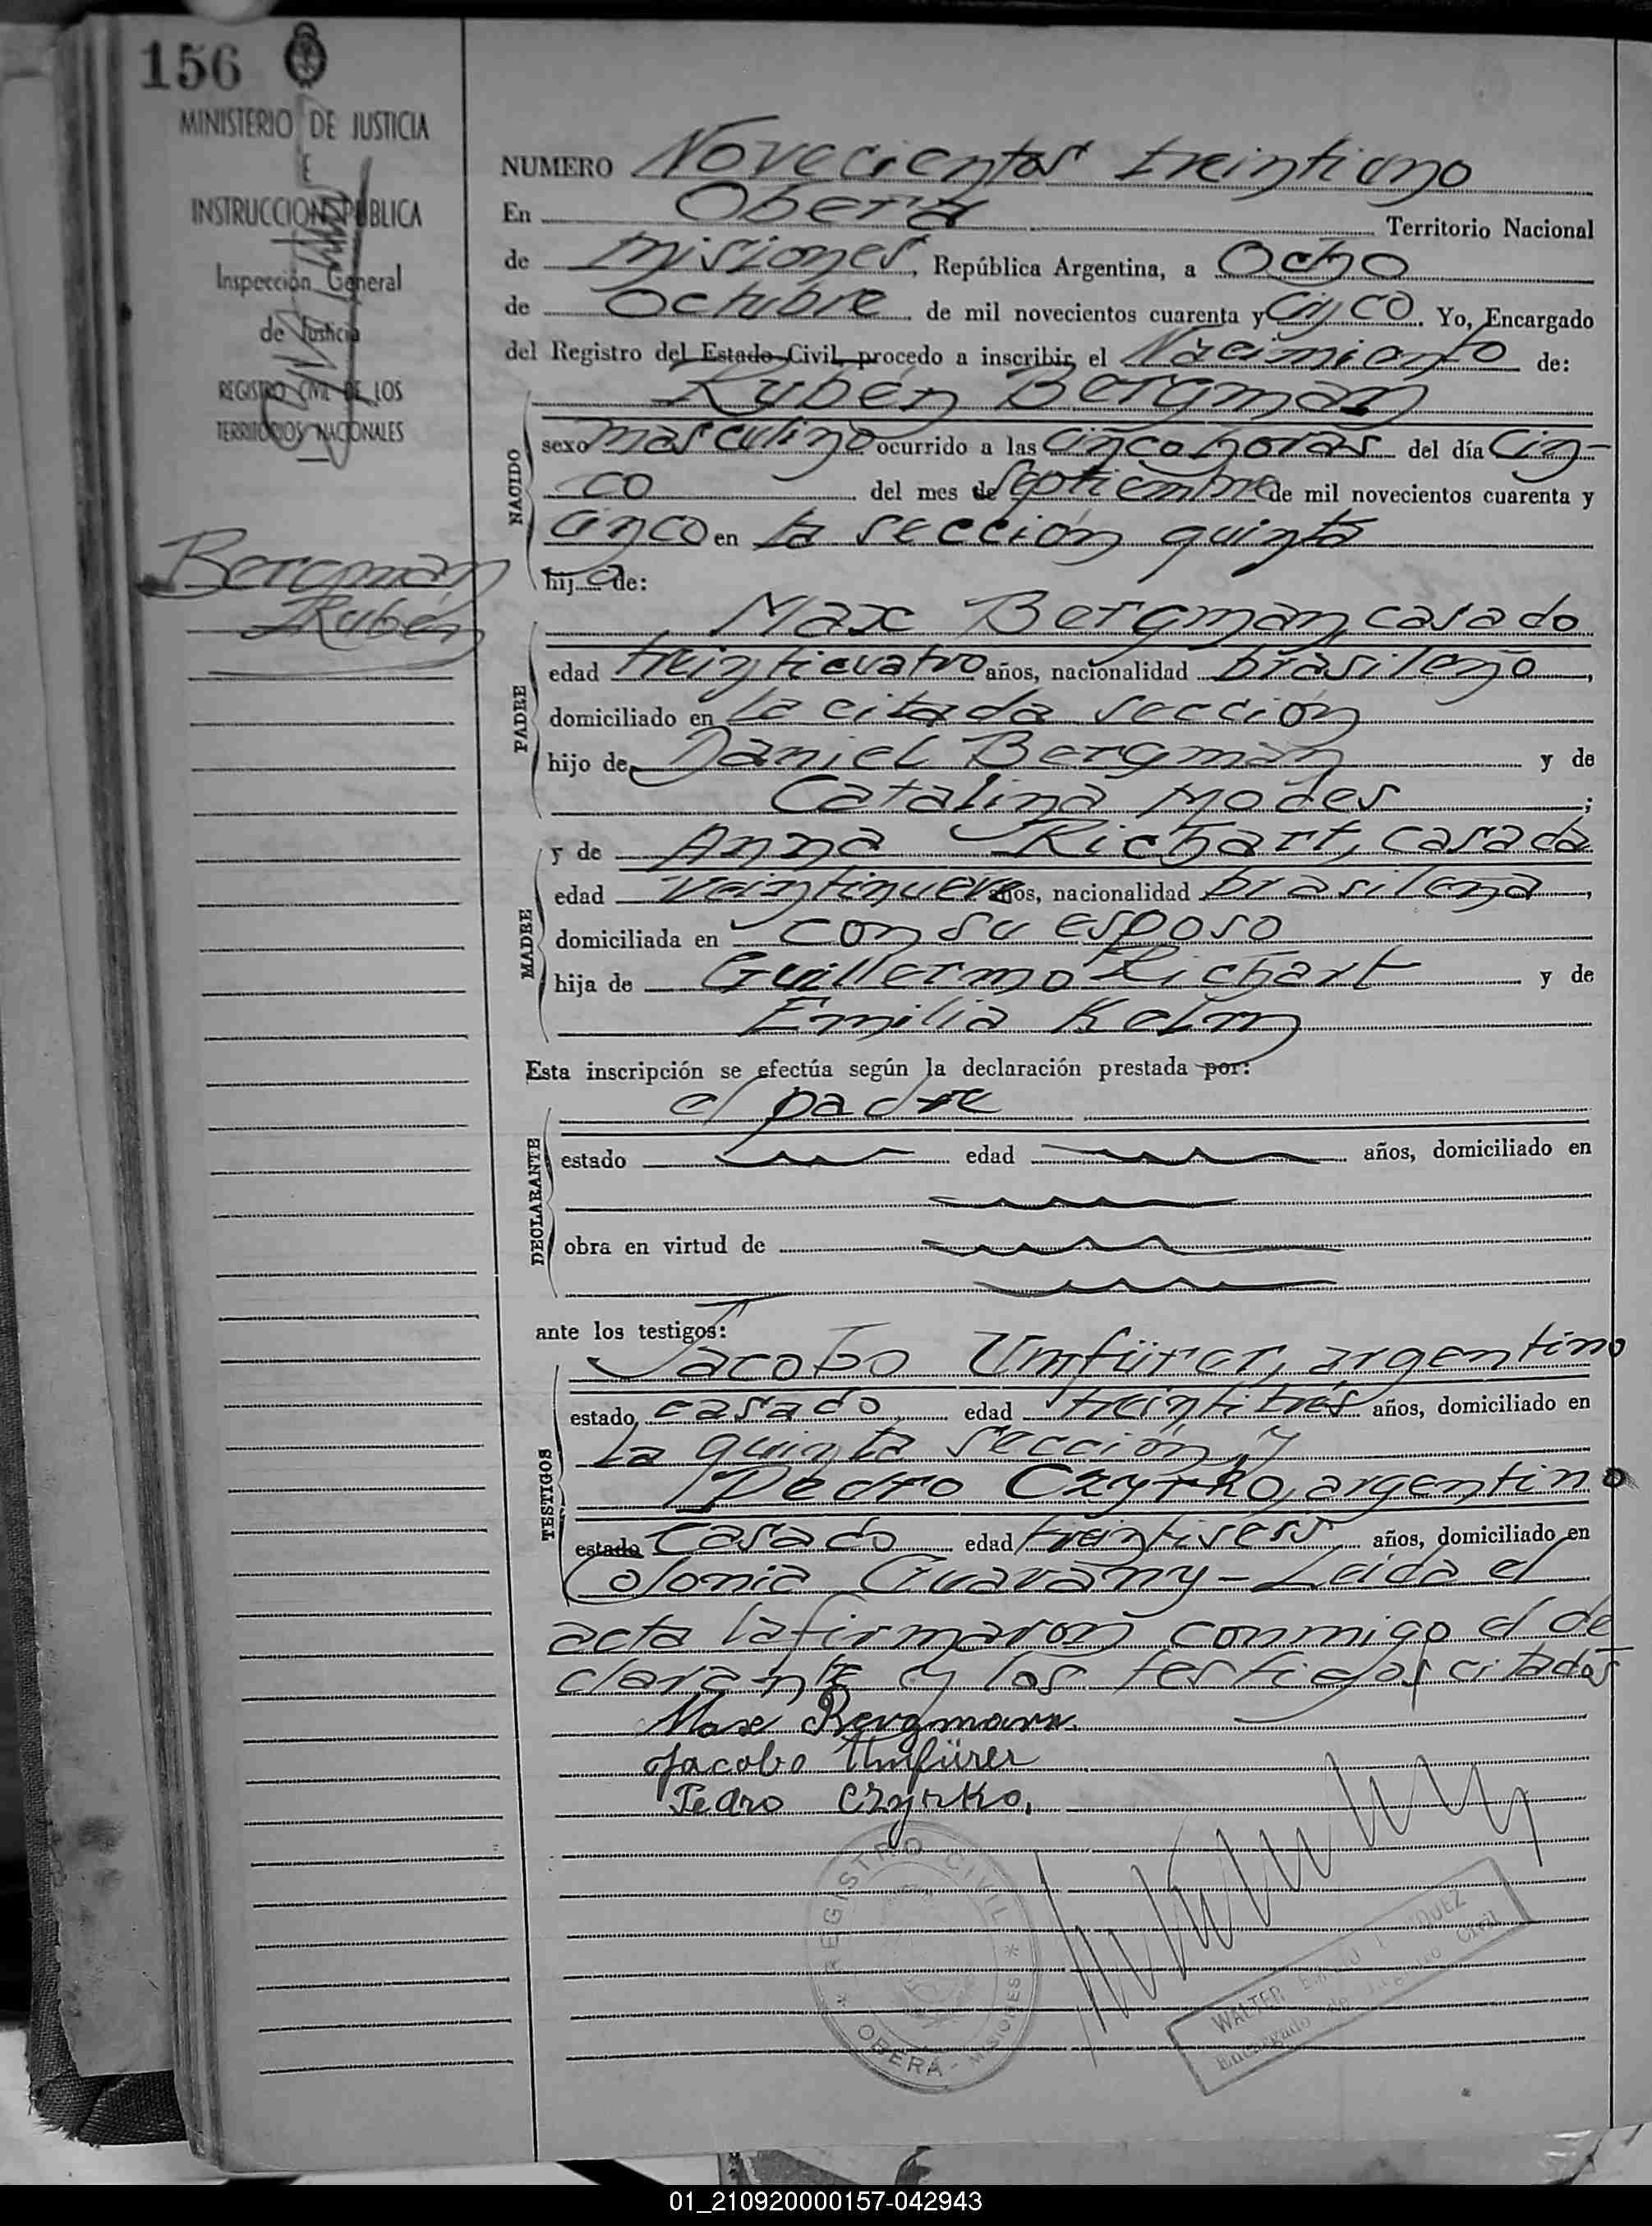 156
MINISTERIO DE JUSTICIA
E
INSTRUCCION PUBLICA
Inspección General
de Justicia
REGISTRO CIVIL DE LOS
TERRITORIOS NACIONALES
Bergman
Rubén
NUMERO Novecientos treintiuno
En Oberá Territorio Nacional
de Misiones, República Argentina, a Ocho
de Octubre de mil novecientos cuarenta y cinco. Yo, Encargado
del Registro del Estado Civil, procedo a inscribir el Nacimiento de:
Rubén Bergman
NACIDO
sexo masculino ocurrido a las cinco horas del día cin-
co del mes de septiembre de mil novecientos cuarenta y
cinco en la sección quinta
hijo de:
Max Bergman, casado
PADRE
edad treinticuatro años, nacionalidad brasileño,
domiciliado en la citada sección
hijo de Daniel Bergman y de
Catalina Modes;
y de Anna Richart, casada
MADRE
edad veintinueve años, nacionalidad brasileña,
domiciliada en con su esposo
hija de Guillermo Richart y de
Emilia Kelm
Esta inscripción se efectúa según la declaración prestada por:
el padre
DECLARANTE
estado edad años, domiciliado en
obra en virtud de
ante los testigos:
Jacobo Umfürer, argentino
TESTIGOS
estado casado edad treintitrés años, domiciliado en
la quinta sección, y
Pedro Czyrko, argentino
estado casado edad treintiseis años, domiciliado en
Colonia Guarany - Leida el
acta la firmaron conmigo el de
clarante y los testigos citados
Max Bergmann.
Jacobo Umfürer
Pedro Czyrko.
REGISTRO CIVIL
* OBERÁ - MISIONES *
WALTER
Encargado de Registro Civil
01_210920000157-042943